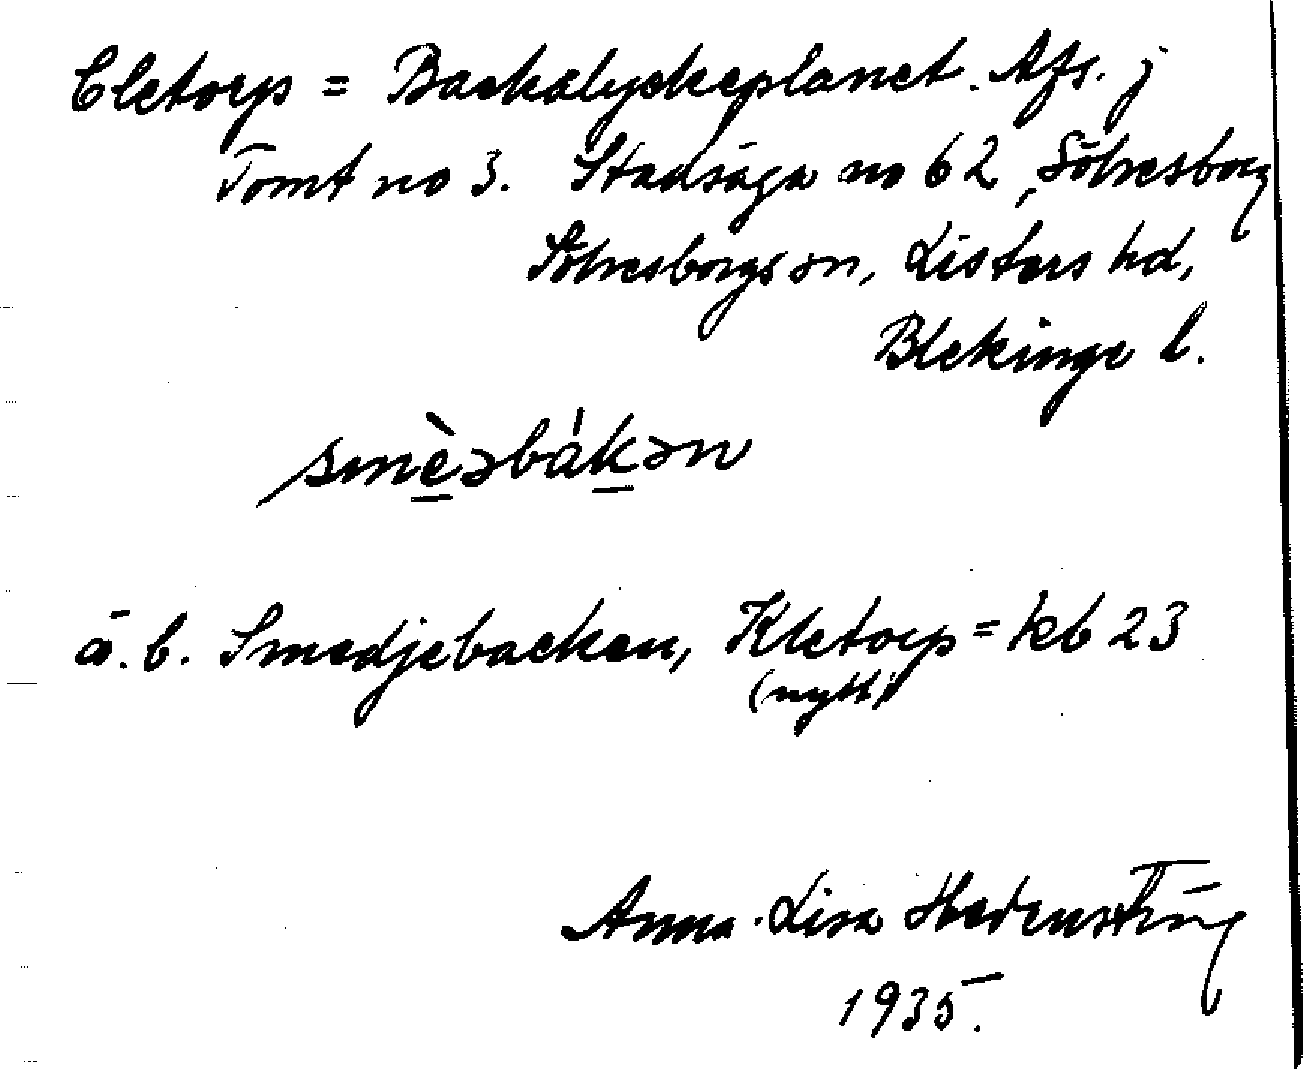 Cletorp = Backalyckeplanet. Afs. j
Tomt no 3. Stadsäga no 62, Sölvesborg
Sölvesborgs sn, Listers hd,
Blekinge l.
smèəbákən
ä. b. Smedjebacken, Kletorp = kb 23
(nytt)
Anna-Lisa Hedenström
1935.